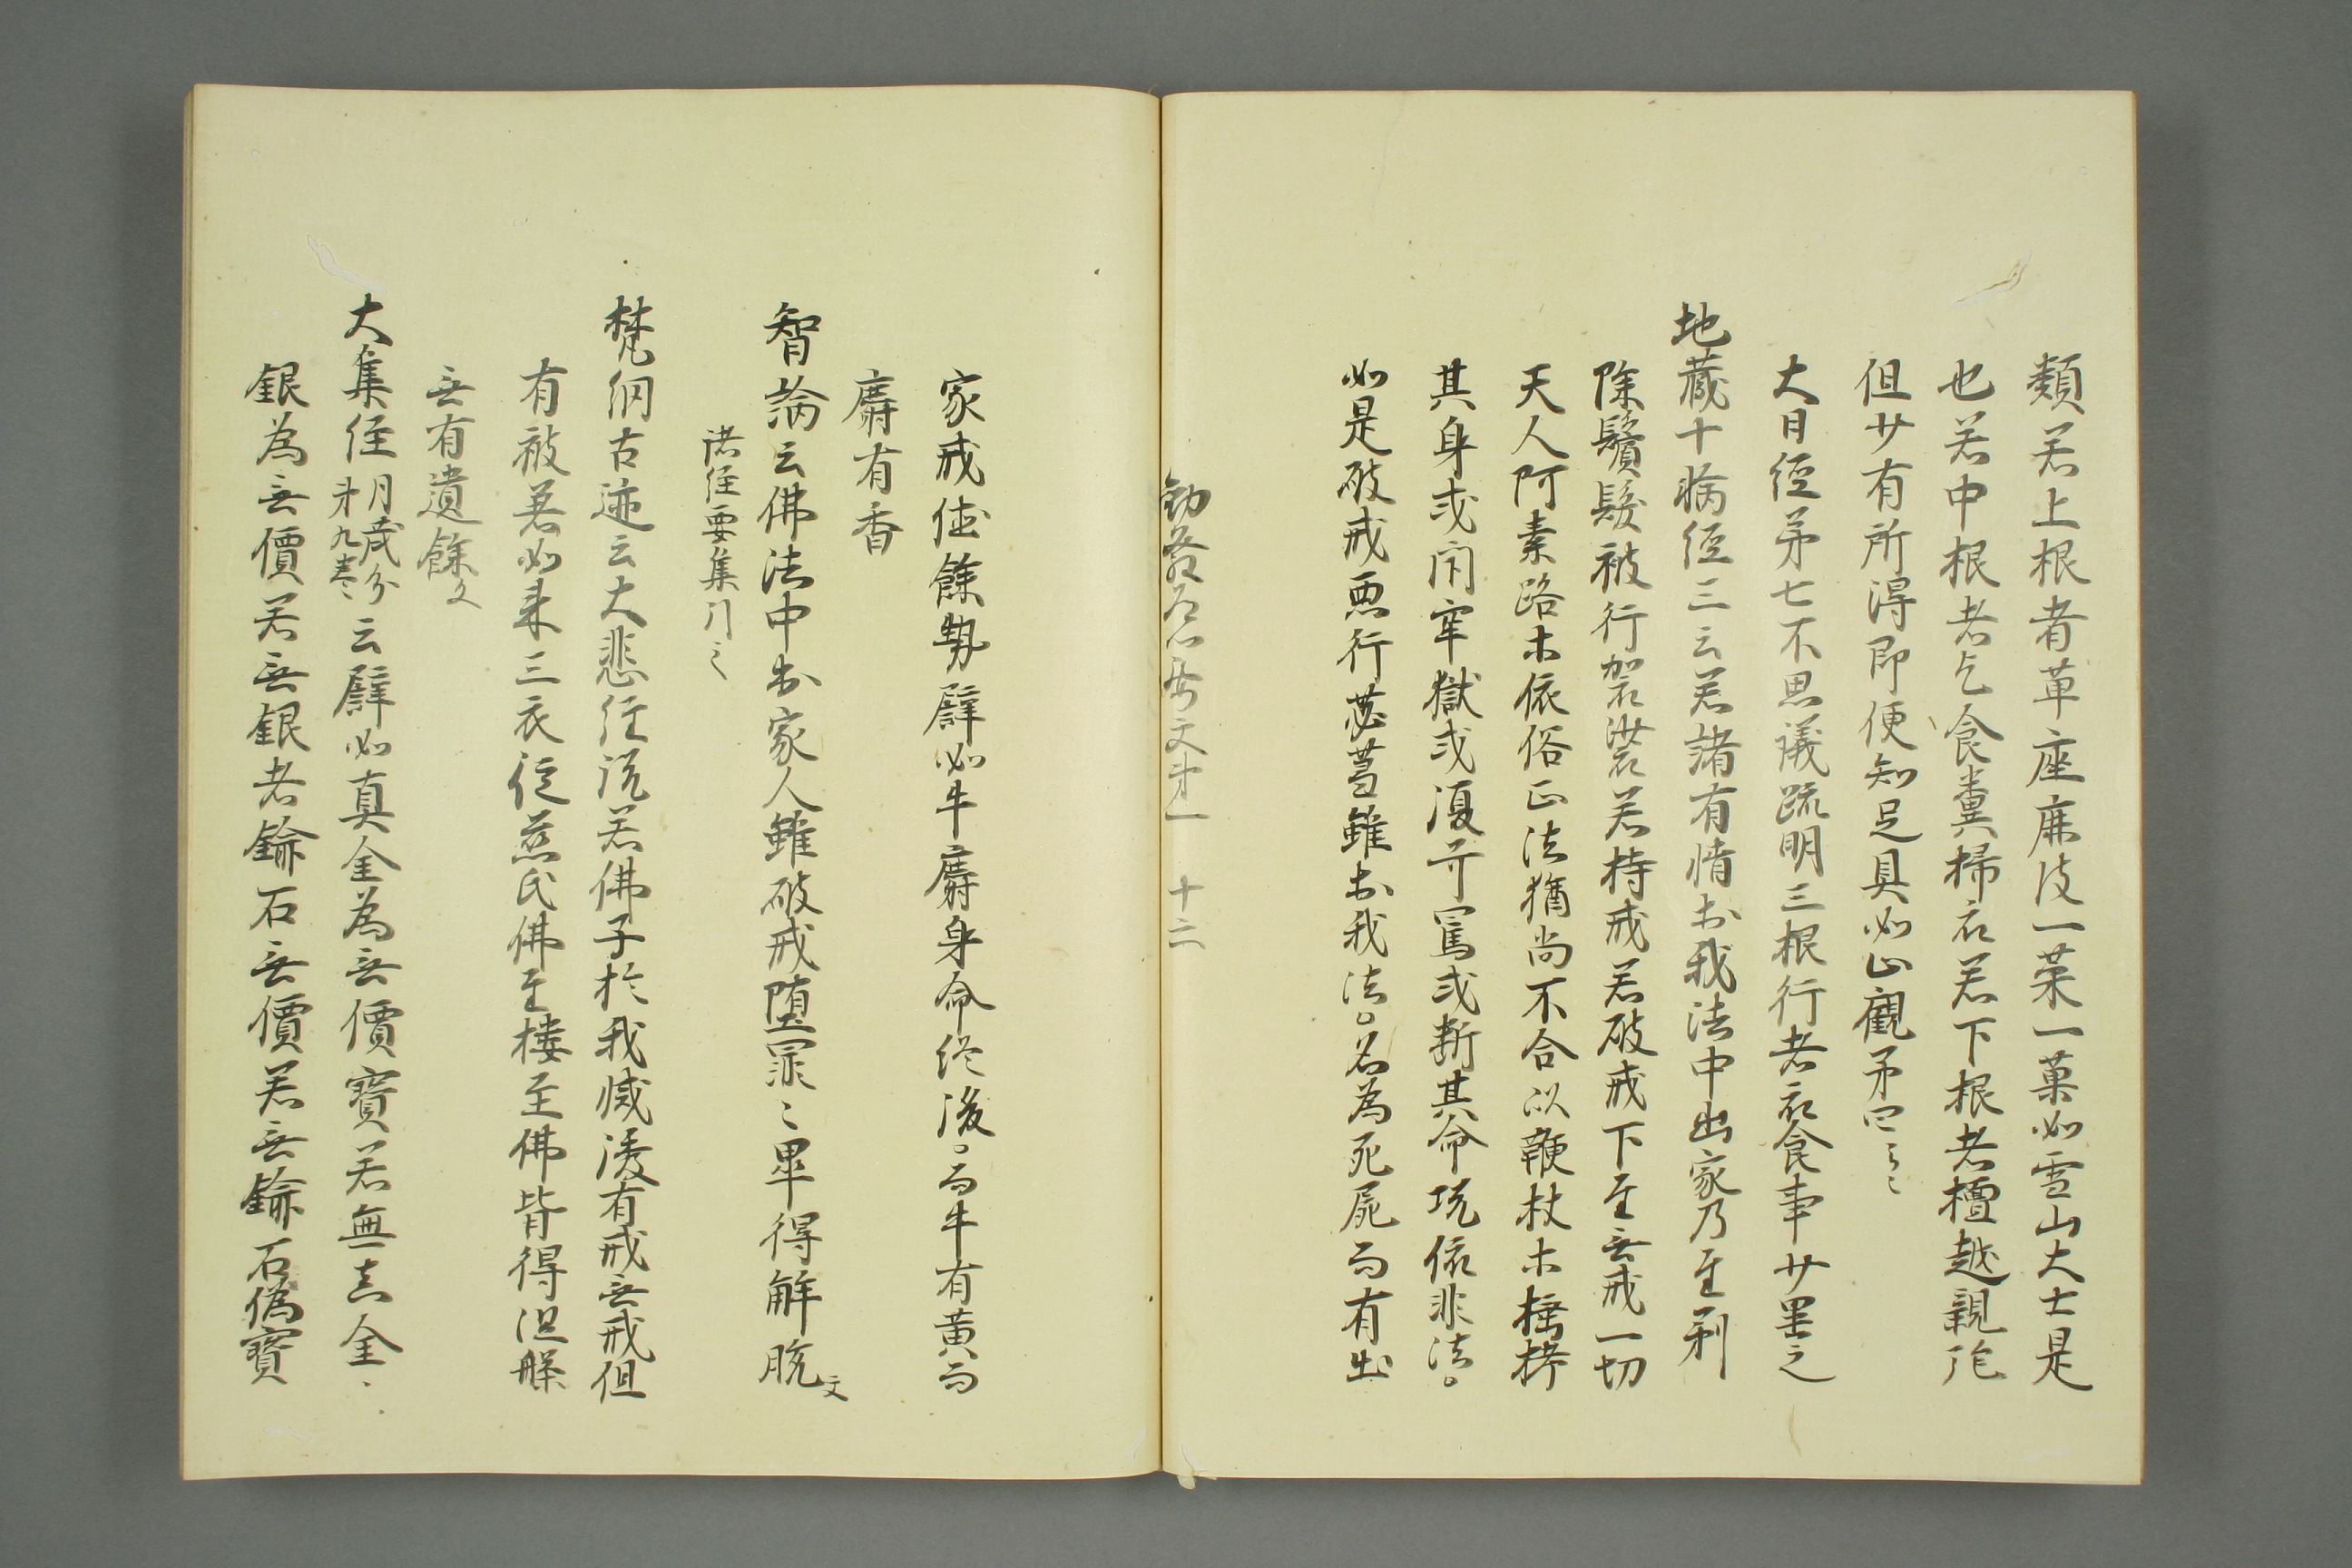 類若上根者草座席皮一菜一菓如雪山大士是
也若中根者乞食糞掃衣若下根者檀越親施
但少有所得即便知足具如止觀第四云々
大日経第七不思議疏明三根行者衣食事廿畧之
地蔵十輪経三云若諸有情於我法中出家乃至剃
除鬚髮被行袈裟若持戒若破戒下至无戒一切
天人阿素路木依俗正法猶尚不合以鞭杖木捶拷
其身或閇牢獄或復呵罵或断其命况依非法。
如是破戒悪行苾蒭雖於我法。名為死屍而有出
勧 文第一 十二
家戒徳餘勢譬如牛麝身命终後。而牛有黄而
麝有香
智論云佛法中出家人雖破戒堕罪々畢得解脱文
諸経要集引之
梵網古迹云大悲経説若佛子於我滅後有戒无戒但
有被著如来三衣従慈氏佛至樓至佛皆得涅槃
无有遺餘文
大集経月蔵分第九巻云譬如真金為无價寶若無真金、
銀為无價若无銀者鍮石无價若无鍮石偽寶